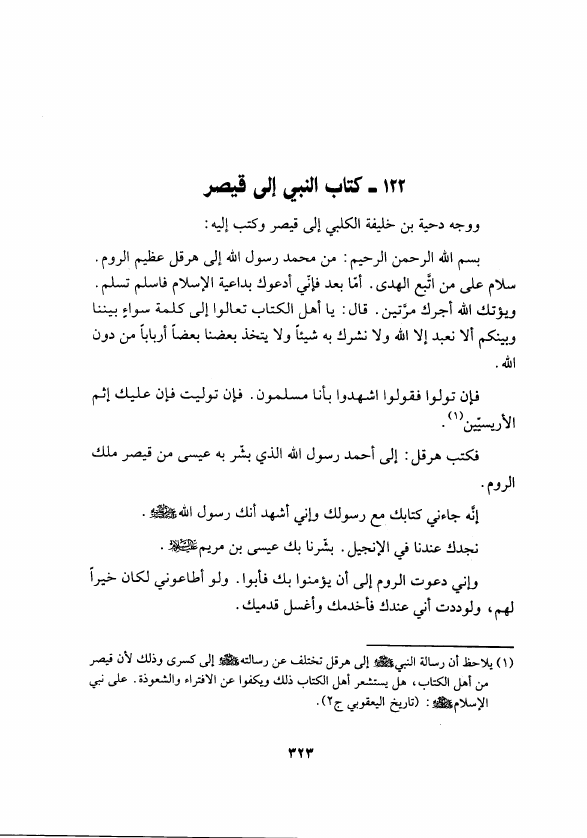 ١٢٢ - كتاب النبي إلى قيصر
ووجه دحية بن خليفة الكلبي إلى قيصر وكتب إليه:
بسم الله الرحمن الرحيم: من محمد رسول الله إلى هرقل عظيم الروم.
سلام على من اتَّبع الهدى. أمّا بعد فإنّي أدعوك بداعية الإسلام فاسلم تسلم.
ويؤتك الله أجرك مرَّتين. قال: يا أهل الكتاب تعالوا إلى كلمة سواءٍ بيننا
وبينكم ألا نعبد إلا الله ولا نشرك به شيئاً ولا يتخذ بعضنا بعضاً أرباباً من دون
الله.
فإن تولوا فقولوا اشهدوا بأنا مسلمون. فإن توليت فإن عليك إثم
الأريسيّين(١).
فكتب هرقل: إلى أحمد رسول الله الذي بشَّر به عيسى من قيصر ملك
الروم.
إنَّه جاءني كتابك مع رسولك وإني أشهد أنك رسول الله ﷺ.
نجدك عندنا في الإنجيل. بشَّرنا بك عيسى بن مريم عليه السلام.
وإني دعوت الروم إلى أن يؤمنوا بك فأبوا. ولو أطاعوني لكان خيراً
لهم، ولوددت أني عندك فأخدمك وأغسل قدميك.
(١) يلاحظ أن رسالة النبي ﷺ إلى هرقل تختلف عن رسالته ﷺ إلى كسرى وذلك لأن قيصر
من أهل الكتاب، هل يستشعر أهل الكتاب ذلك ويكفوا عن الافتراء والشعوذة. على نبي
الإسلام ﷺ: (تاريخ اليعقوبي ج٢).
٣٢٣